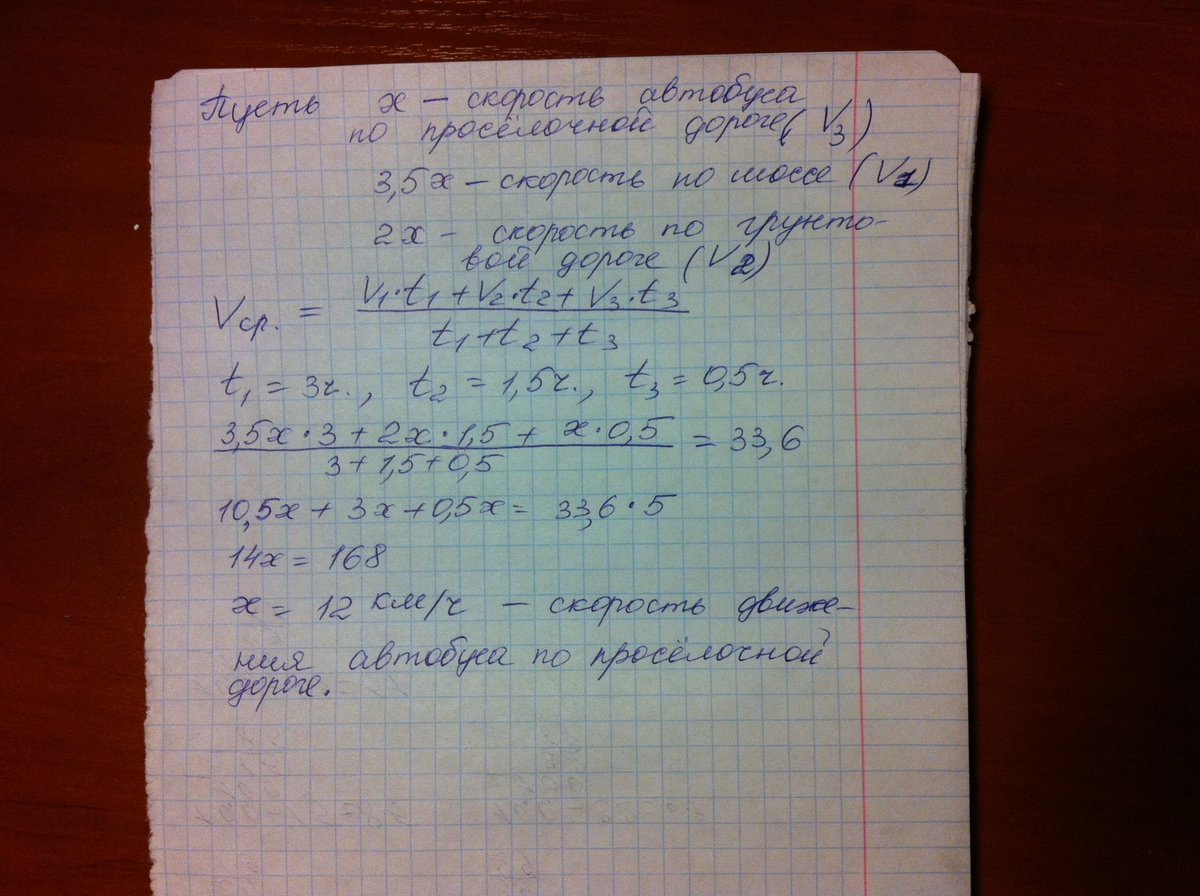 Пусть х – скорость автобуса
по просёлочной дороге (V₃)
3,5х – скорость по шоссе (V₁)
2х – скорость по грунто-
вой дороге (V₂)
Vср. = (V₁·t₁ + V₂·t₂ + V₃·t₃) / (t₁ + t₂ + t₃)
t₁ = 3ч., t₂ = 1,5ч., t₃ = 0,5ч.
(3,5х·3 + 2х·1,5 + х·0,5) / (3 + 1,5 + 0,5) = 33,6
10,5х + 3х + 0,5х = 33,6·5
14х = 168
х = 12 км/ч – скорость движе-
ния автобуса по просёлочной
дороге.